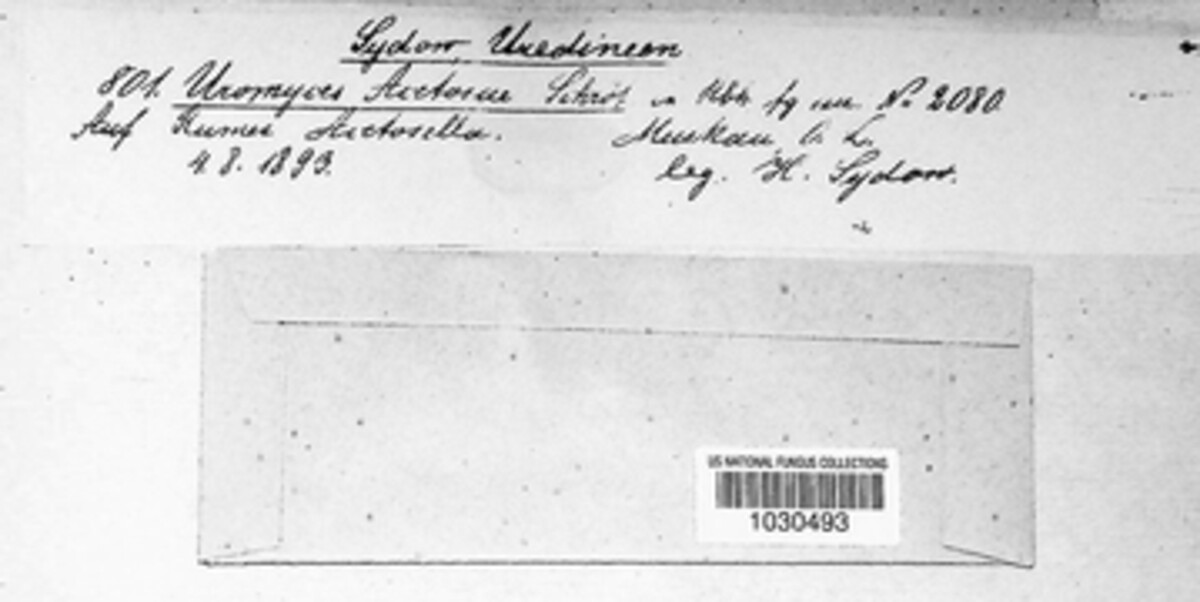 Sydow, Uredineen
801. Uromyces Acetosae Schröt. in Rbh. fg eur. No 2080.
Auf Rumex Acetosella. Muskau O. L.
4. 8. 1893. leg. H. Sydow.
US NATIONAL FUNGUS COLLECTIONS
1030493